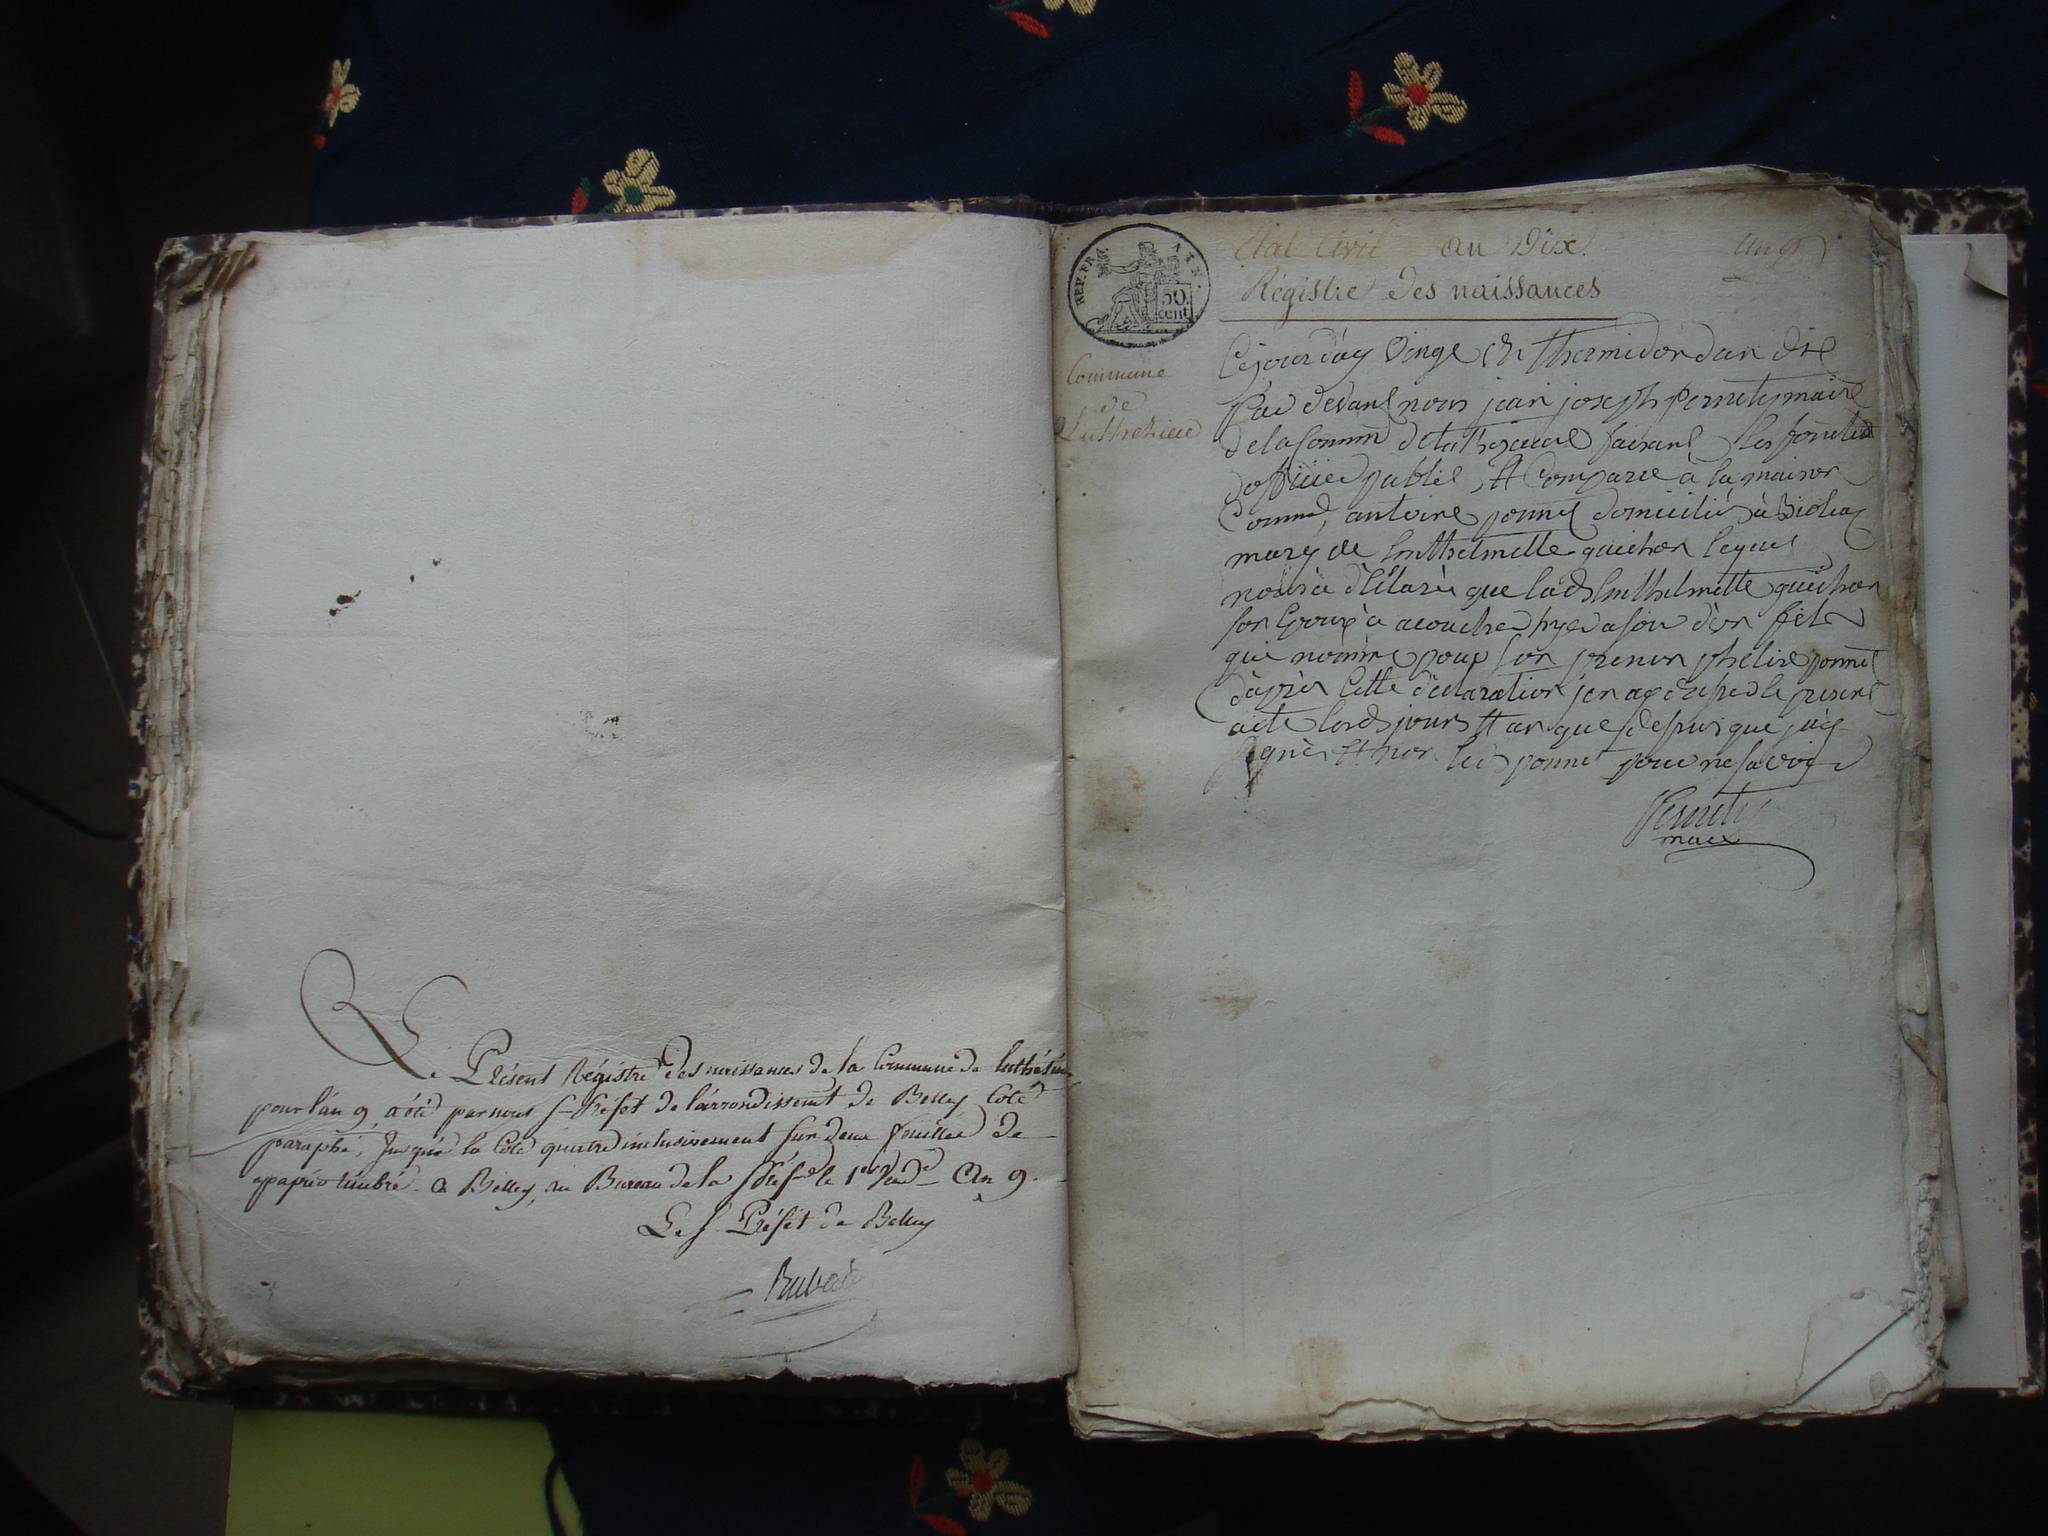 Le Présent Régistre des naissances de la Commune de
pour l'an 9, a été par nous s-Préfet de l'arrondissement de Belley Coté
paraphé, Jusqu'à la Cote quatre inclusivement sur deux feuilles de
papier timbré - a Belley, au Bureau de la le 1er An 9.
Le s Préfet de Belley
REP. FRA
50.
cent
Etat Civil an Dix. an 9
Régistre des naissances
Commune
de
Cejourduy vingt thermidor dan dix
par devant nous jean joseph maire
de la Comm de faisant les
dofficier public, A Comparu à la maison
Comm, antoine ponnet domicilié à
mary de guichon lequel
nous a déclaré que lad guichon
son Epouse à acouché hyer a soir d'un fils
que nommé pour son prenon ponnet
d'après cette déclaration jen ay le présent
acte lesd jours et an que dessus que jay
signé et non led ponnet pour ne savoir
maire